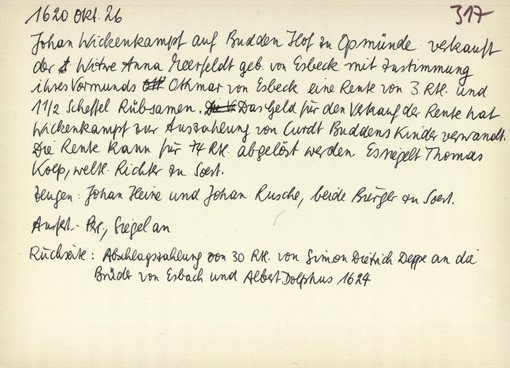 1620 Okt. 26 317
Johan Wickenkampf auf Budden Hof zu Opmünde verkauft
der Witwe Anna Meerfeldt geb. von Esbeck mit Zustimmung
ihres Vormunds Othmar von Esbeck eine Rente von 3 Rtl. und
1 1/2 Scheffel Rübsamen. Das Geld für den Verkauf der Rente hat
Wickenkampf zur Auszahlung von Curdt Buddens Kinder verwandt.
Die Rente kann für 74 Rtl. abgelöst werden. Es siegelt Thomas
Koep, weltl. Richter zu Soest.
Zeugen: Johan Heine und Johan Rusche, beide Bürger zu Soest.
Ausf. Pgt, Siegel an
Rückseite: Abschlagszahlung von 30 Rtl. von Simon Dietrich Deppe an die
Brüder von Esbach und Albert Dolphus 1624